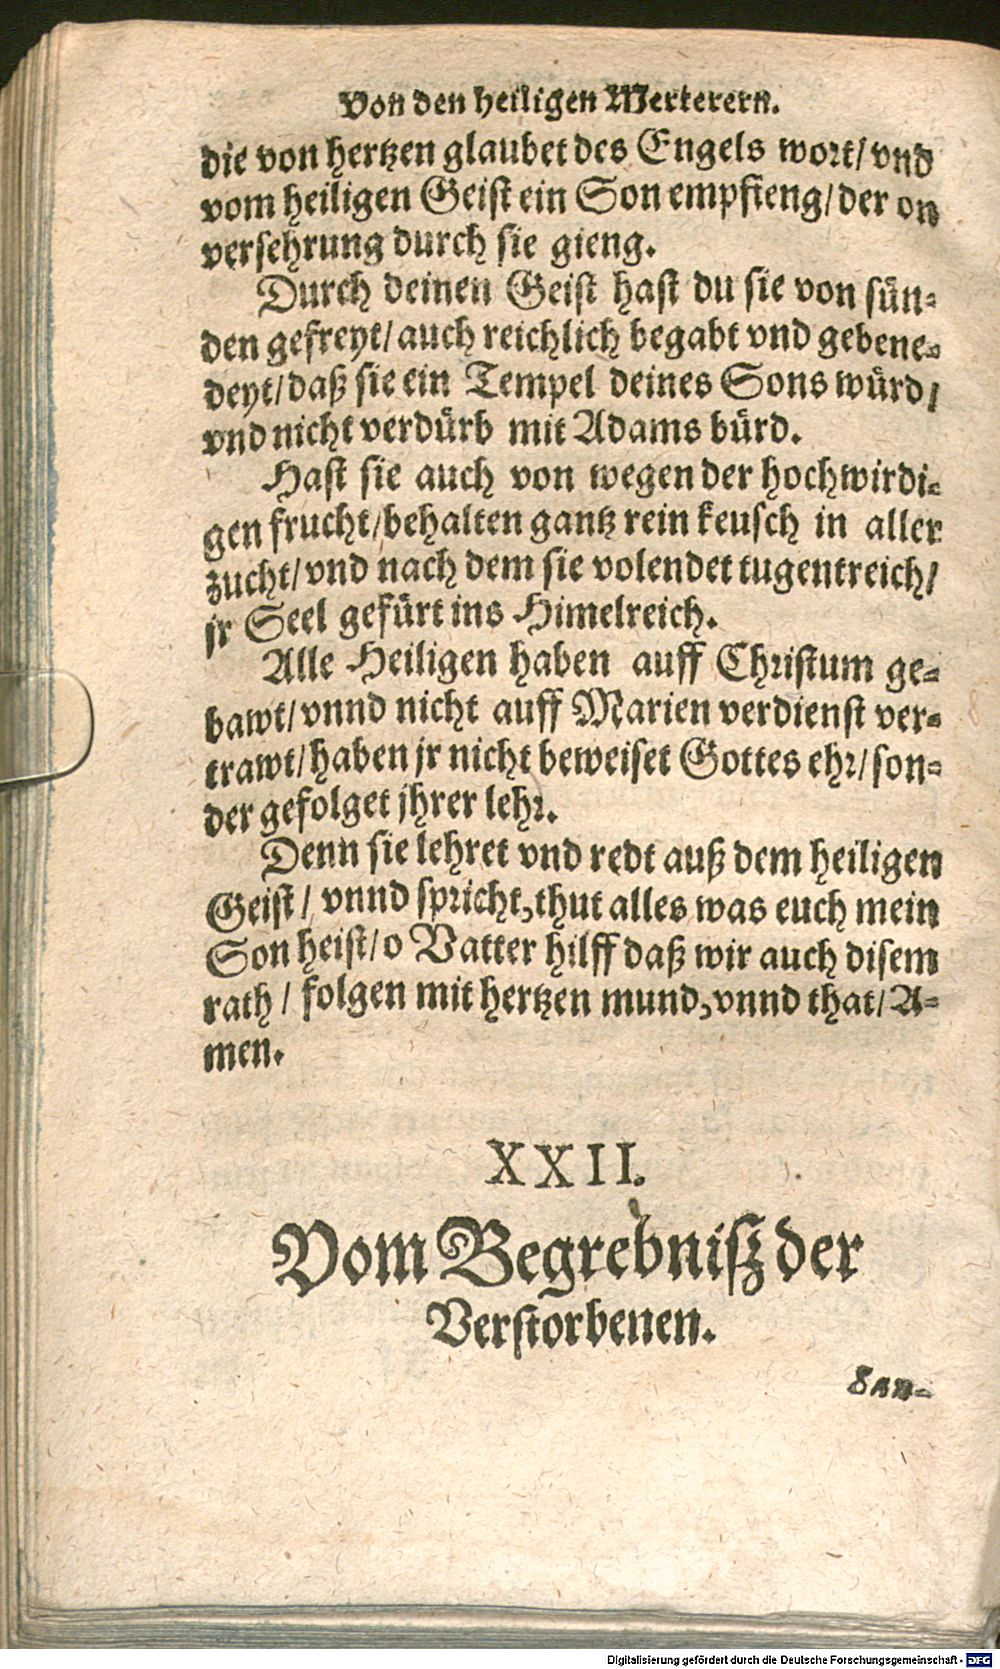 Von den heiligen Merterern.
die von hertzen glaubet des Engels wort/ vnd
vom heiligen Geist ein Son empfieng/ der on
versehrung durch sie gieng.
Durch deinen Geist hast du sie von sün⸗
den gefreyt/ auch reichlich begabt vnd gebene⸗
deyt/ daß sie ein Tempel deines Sons würd/
vnd nicht verdürb mit Adams bürd.
Hast sie auch von wegen der hochwirdi⸗
gen frucht/ behalten gantz rein keusch in aller
zucht/ vnd nach dem sie volendet tugentreich/
jr Seel gefürt ins Himelreich.
Alle Heiligen haben auff Christum ge⸗
bawt/ vnnd nicht auff Marien verdienst ver⸗
trawt/ haben jr nicht beweiset Gottes ehr/ son⸗
der gefolget jhrer lehr.
Denn sie lehret vnd redt auß dem heiligen
Geist/ vnnd spricht, thut alles was euch mein
Son heist/ o Vatter hilff daß wir auch disem
rath/ folgen mit hertzen mund, vnnd that/ A⸗
men.
XXII.
Vom Begrebnisz der
Verstorbenen.
Digitalisierung gefördert durch die Deutsche Forschungsgemeinschaft - DFG